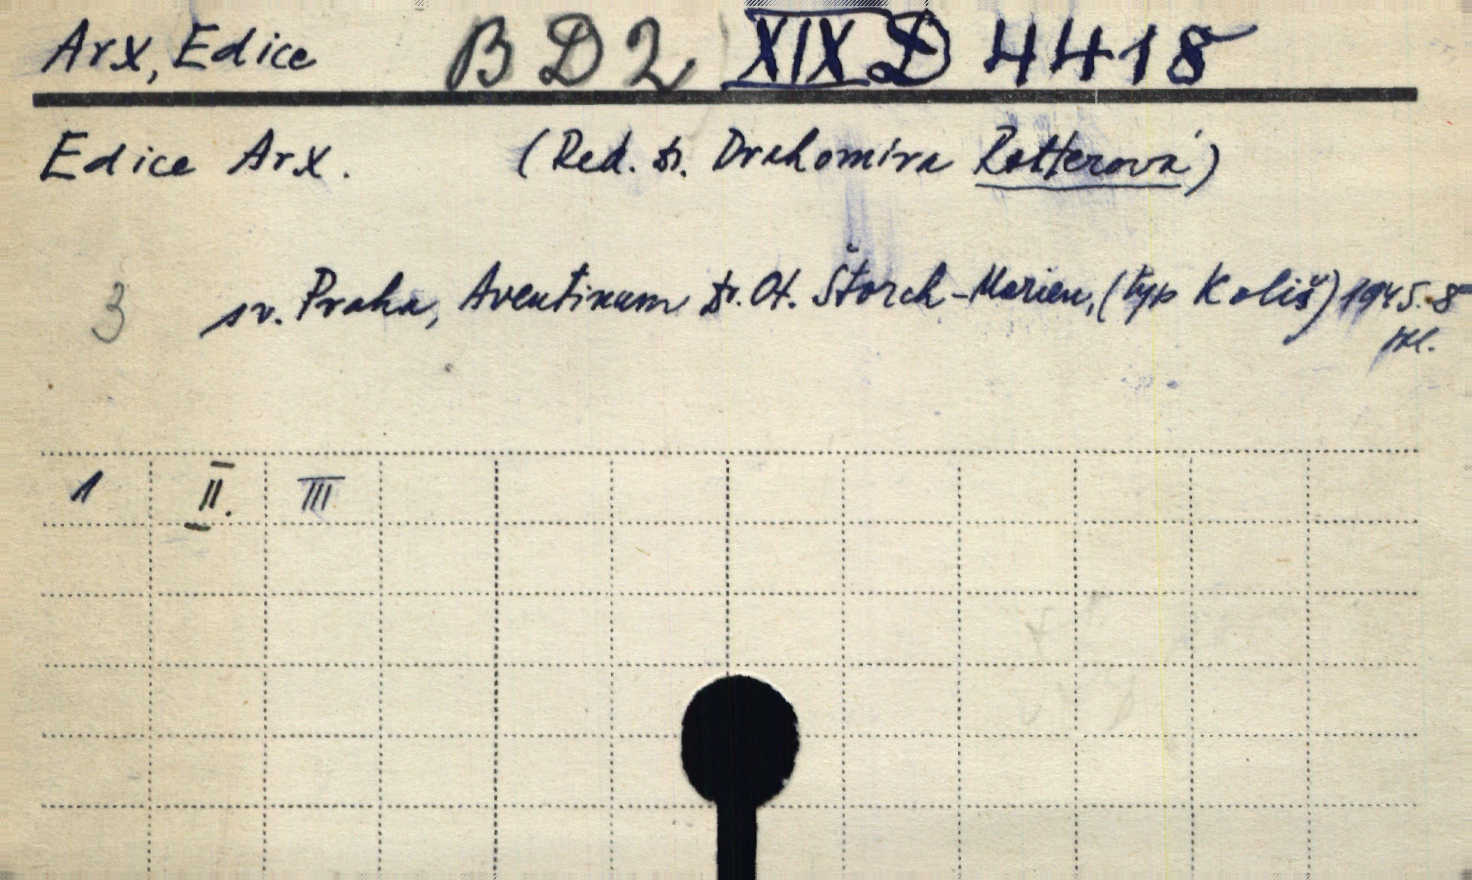 Arx, Edice BD2 XIX D 4418
Edice Arx. (Red. Dr. Drahomíra Rotterová)
3 sv. Praha, Aventinum Dr. Ot. Štorch-Marien, (typ Koliš) 1945.-8°
1 II. III